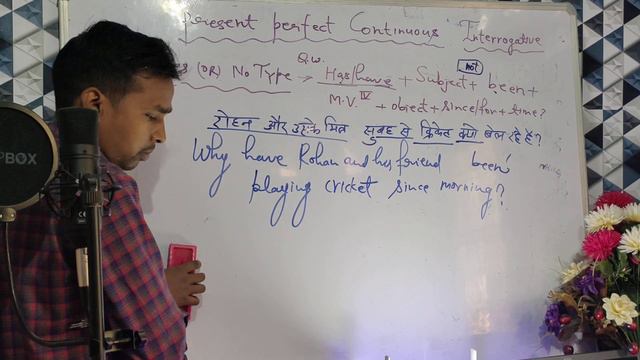 Present perfect Continuous Interrogative
(OR) No Type → Q.W. Has/have + Subject + (not) been +
M.V. IV + object + since/for + time?
रोहन और उसके मित्र सुबह से क्रिकेट क्यों खेल रहे हैं?
Why have Rohan and his friend been
playing cricket since morning?
PBOX